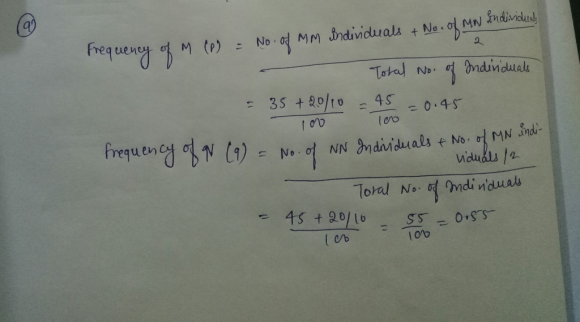 (a)
Frequency of M (P) = No. of MM Individuals + No. of MN Individuals
2
Total No. of Individuals
= 35 + 20/10 = 45 = 0.45
100 100
Frequency of N (q) = No. of NN Individuals + No. of MN Indi-
viduals /2
Total No. of Individuals
= 45 + 20/10 = 55 = 0.55
100 100